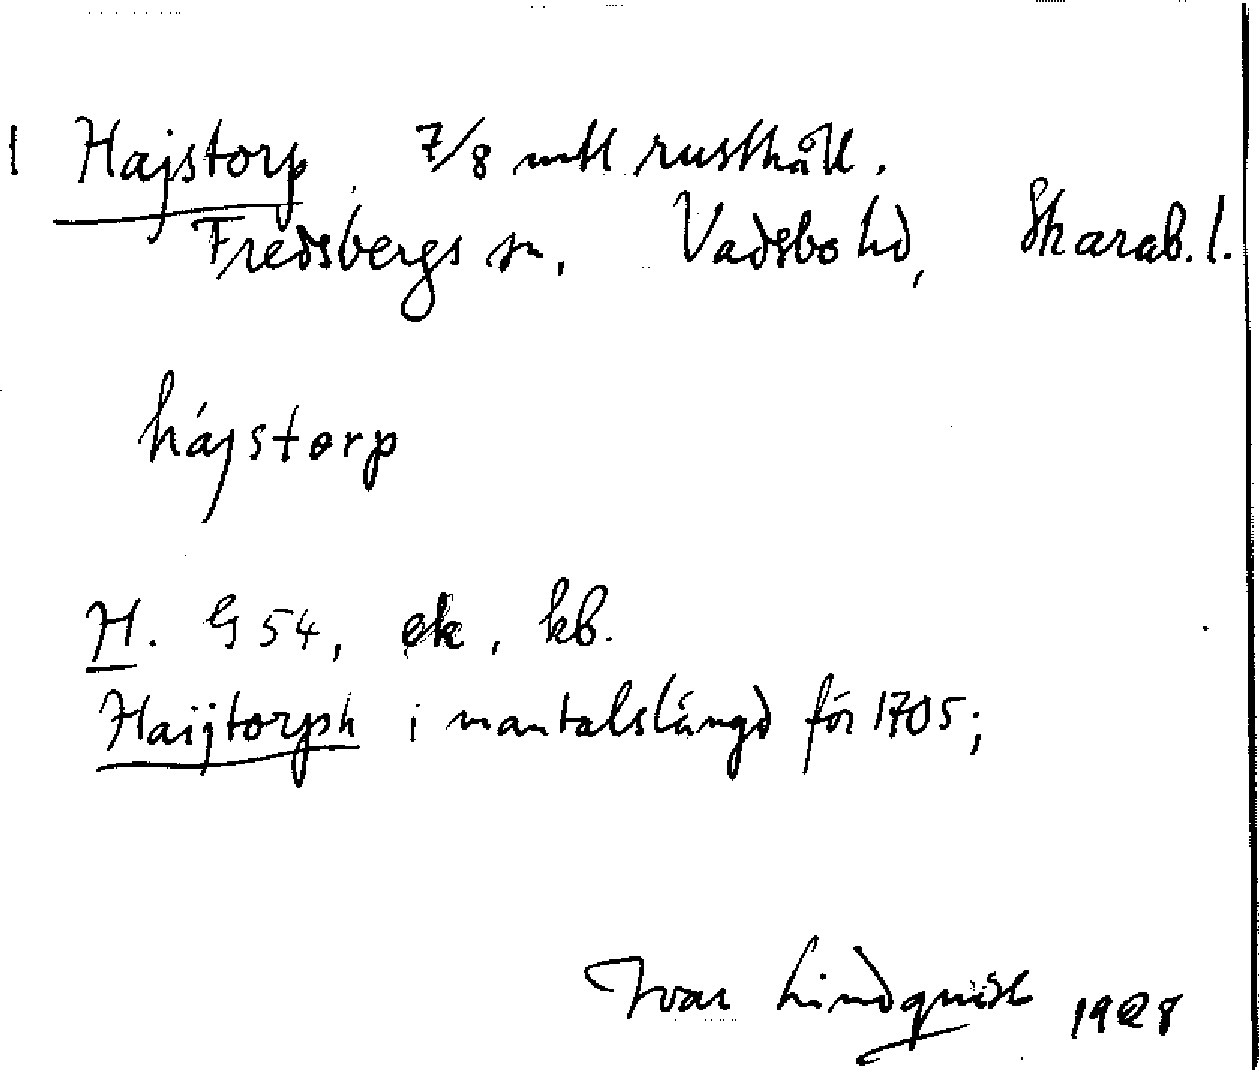 1 Hajstorp 7/8 mtl rusthåll.
Fredsbergs sn, Vadsbo hd, Skarab. l.
hájstorp
H. G 54, ek, kb.
Haijtorph i mantalslängd för 1705;
Ivar Lindquist 1928